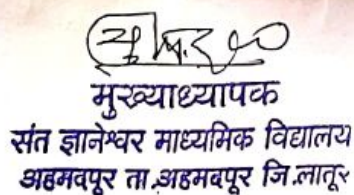 मुख्याध्यापक
संत ज्ञानेश्वर माध्यमिक विद्यालय
अहमदपूर ता.अहमदपूर जि.लातूर